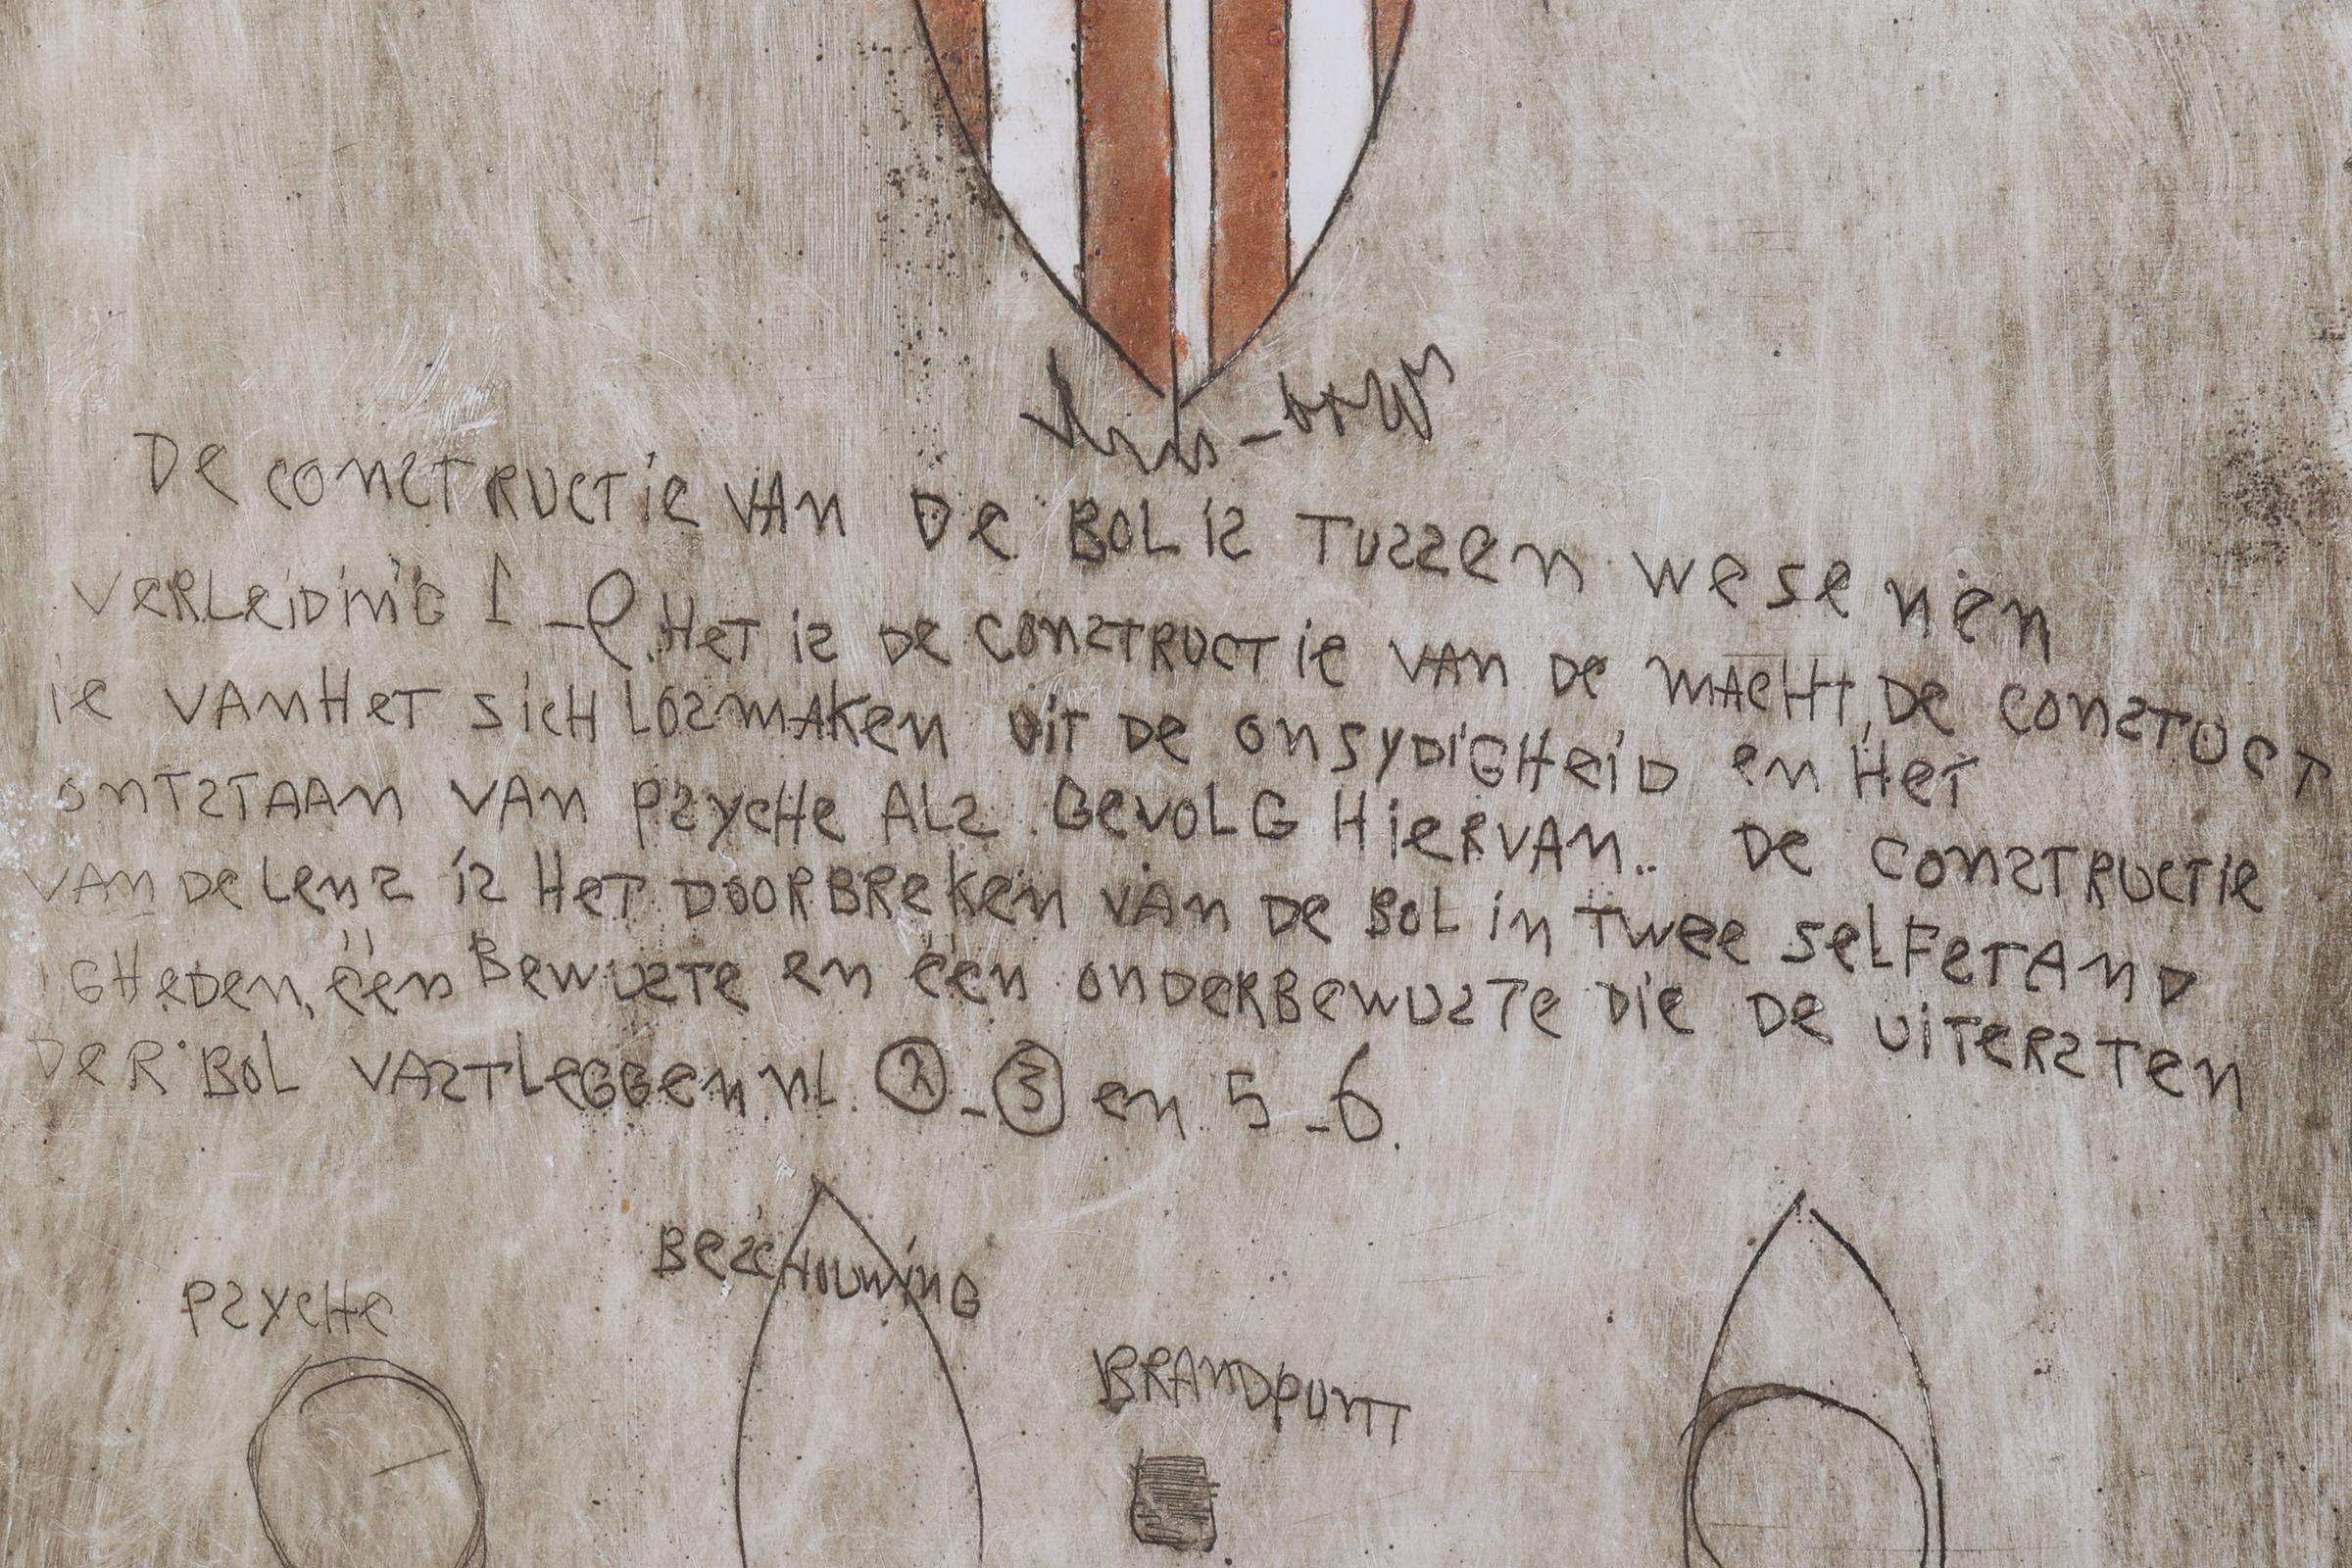 De constructie van De Bol is Tussen wesenen
verleiding 1 -9. Het is De constructie van De macht, De constuct
ie van Het sich Losmaken uit De onsydigheid en Het
ontstaan van Psyche Als Gevolg Hiervan.. De constructie
van De Lens is Het Doorbreken van De Bol in Twee selfetand
gheden, één Bewuste en één onderbewuste Die De uitersten
Der Bol vastleggen nl. ② - ③ en 5 - 6.
Beschouwing
Psyche
Brandpunt